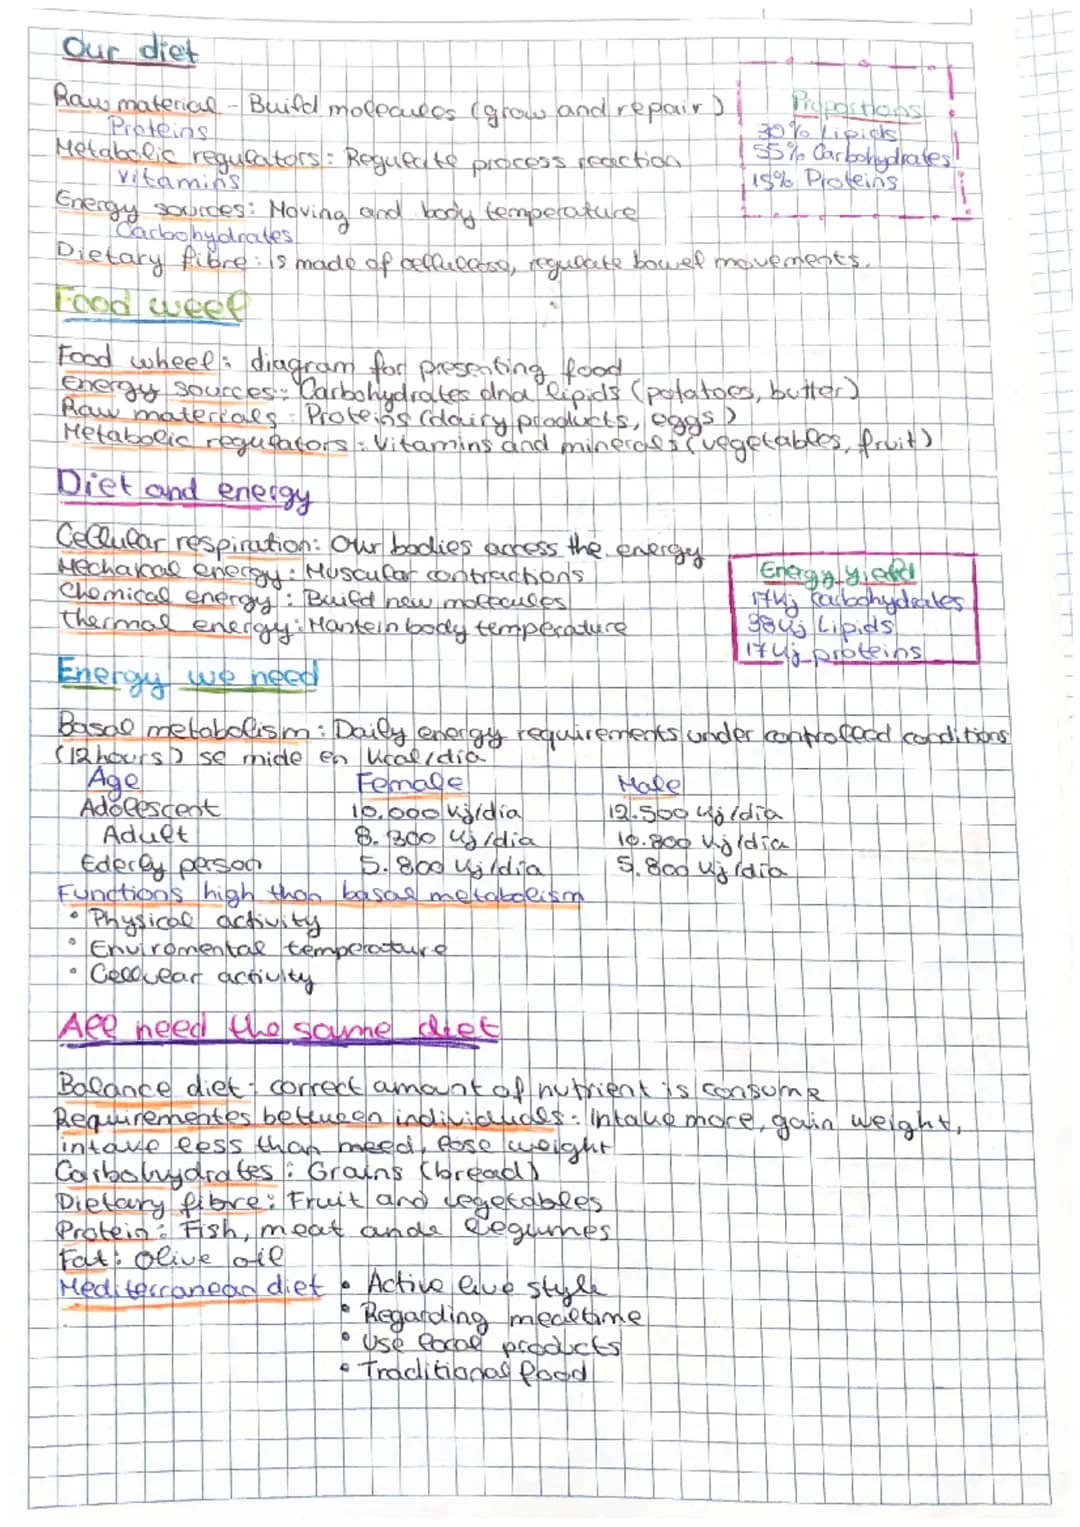 Our diet
Raw material - Build molecules (grow and repair)
Proteins
Metabolic regulators: Regulate process reaction
vitamins
Energy sources: Moving and body temperature
Carbohydrates
Dietary fibre: is made of cellulose, regulate bowel movements.
Proportions
30% Lipids
55% Carbohydrates
15% Proteins
Food weel
Food wheel: diagram for presenting food
Energy sources: Carbohydrates and lipids (potatoes, butter)
Raw materials: Proteins (dairy products, eggs)
Metabolic regulators: Vitamins and minerals (vegetables, fruit)
Diet and energy
Cellular respiration: Our bodies access the energy
Mechaical energy: Muscular contractions
Chemical energy: Build new molecules
thermal energy: Mantein body temperature
Energy yield
17kj Carbohydrates
38kj Lipids
17kj proteins
Energy we need
Basal metabolism: Daily energy requirements under controlled conditions
(12hours) se mide en kcal/día
Age Female Male
Adolescent 10.000 kj/día 12.500 kj/día
Adult 8.300 kj/día 10.800 kj/día
Ederly person 5.800 kj/día 5.800 kj/día
Functions high than basal metabolism
• Physical activity
• Enviromental temperature
• Celluear activity
All need the same diet
Balance diet: correct amount of nutrient is consume
Requirementes between individuals: Intake more, gain weight,
intake less than meed, lose weight
Carbohydrates: Grains (bread)
Dietary fibre: Fruit and vegetables
Protein: Fish, meat ande legumes
Fat: Olive oil
Mediterranean diet • Active live style
• Regarding mealtime
• Use local products
• Traditional food